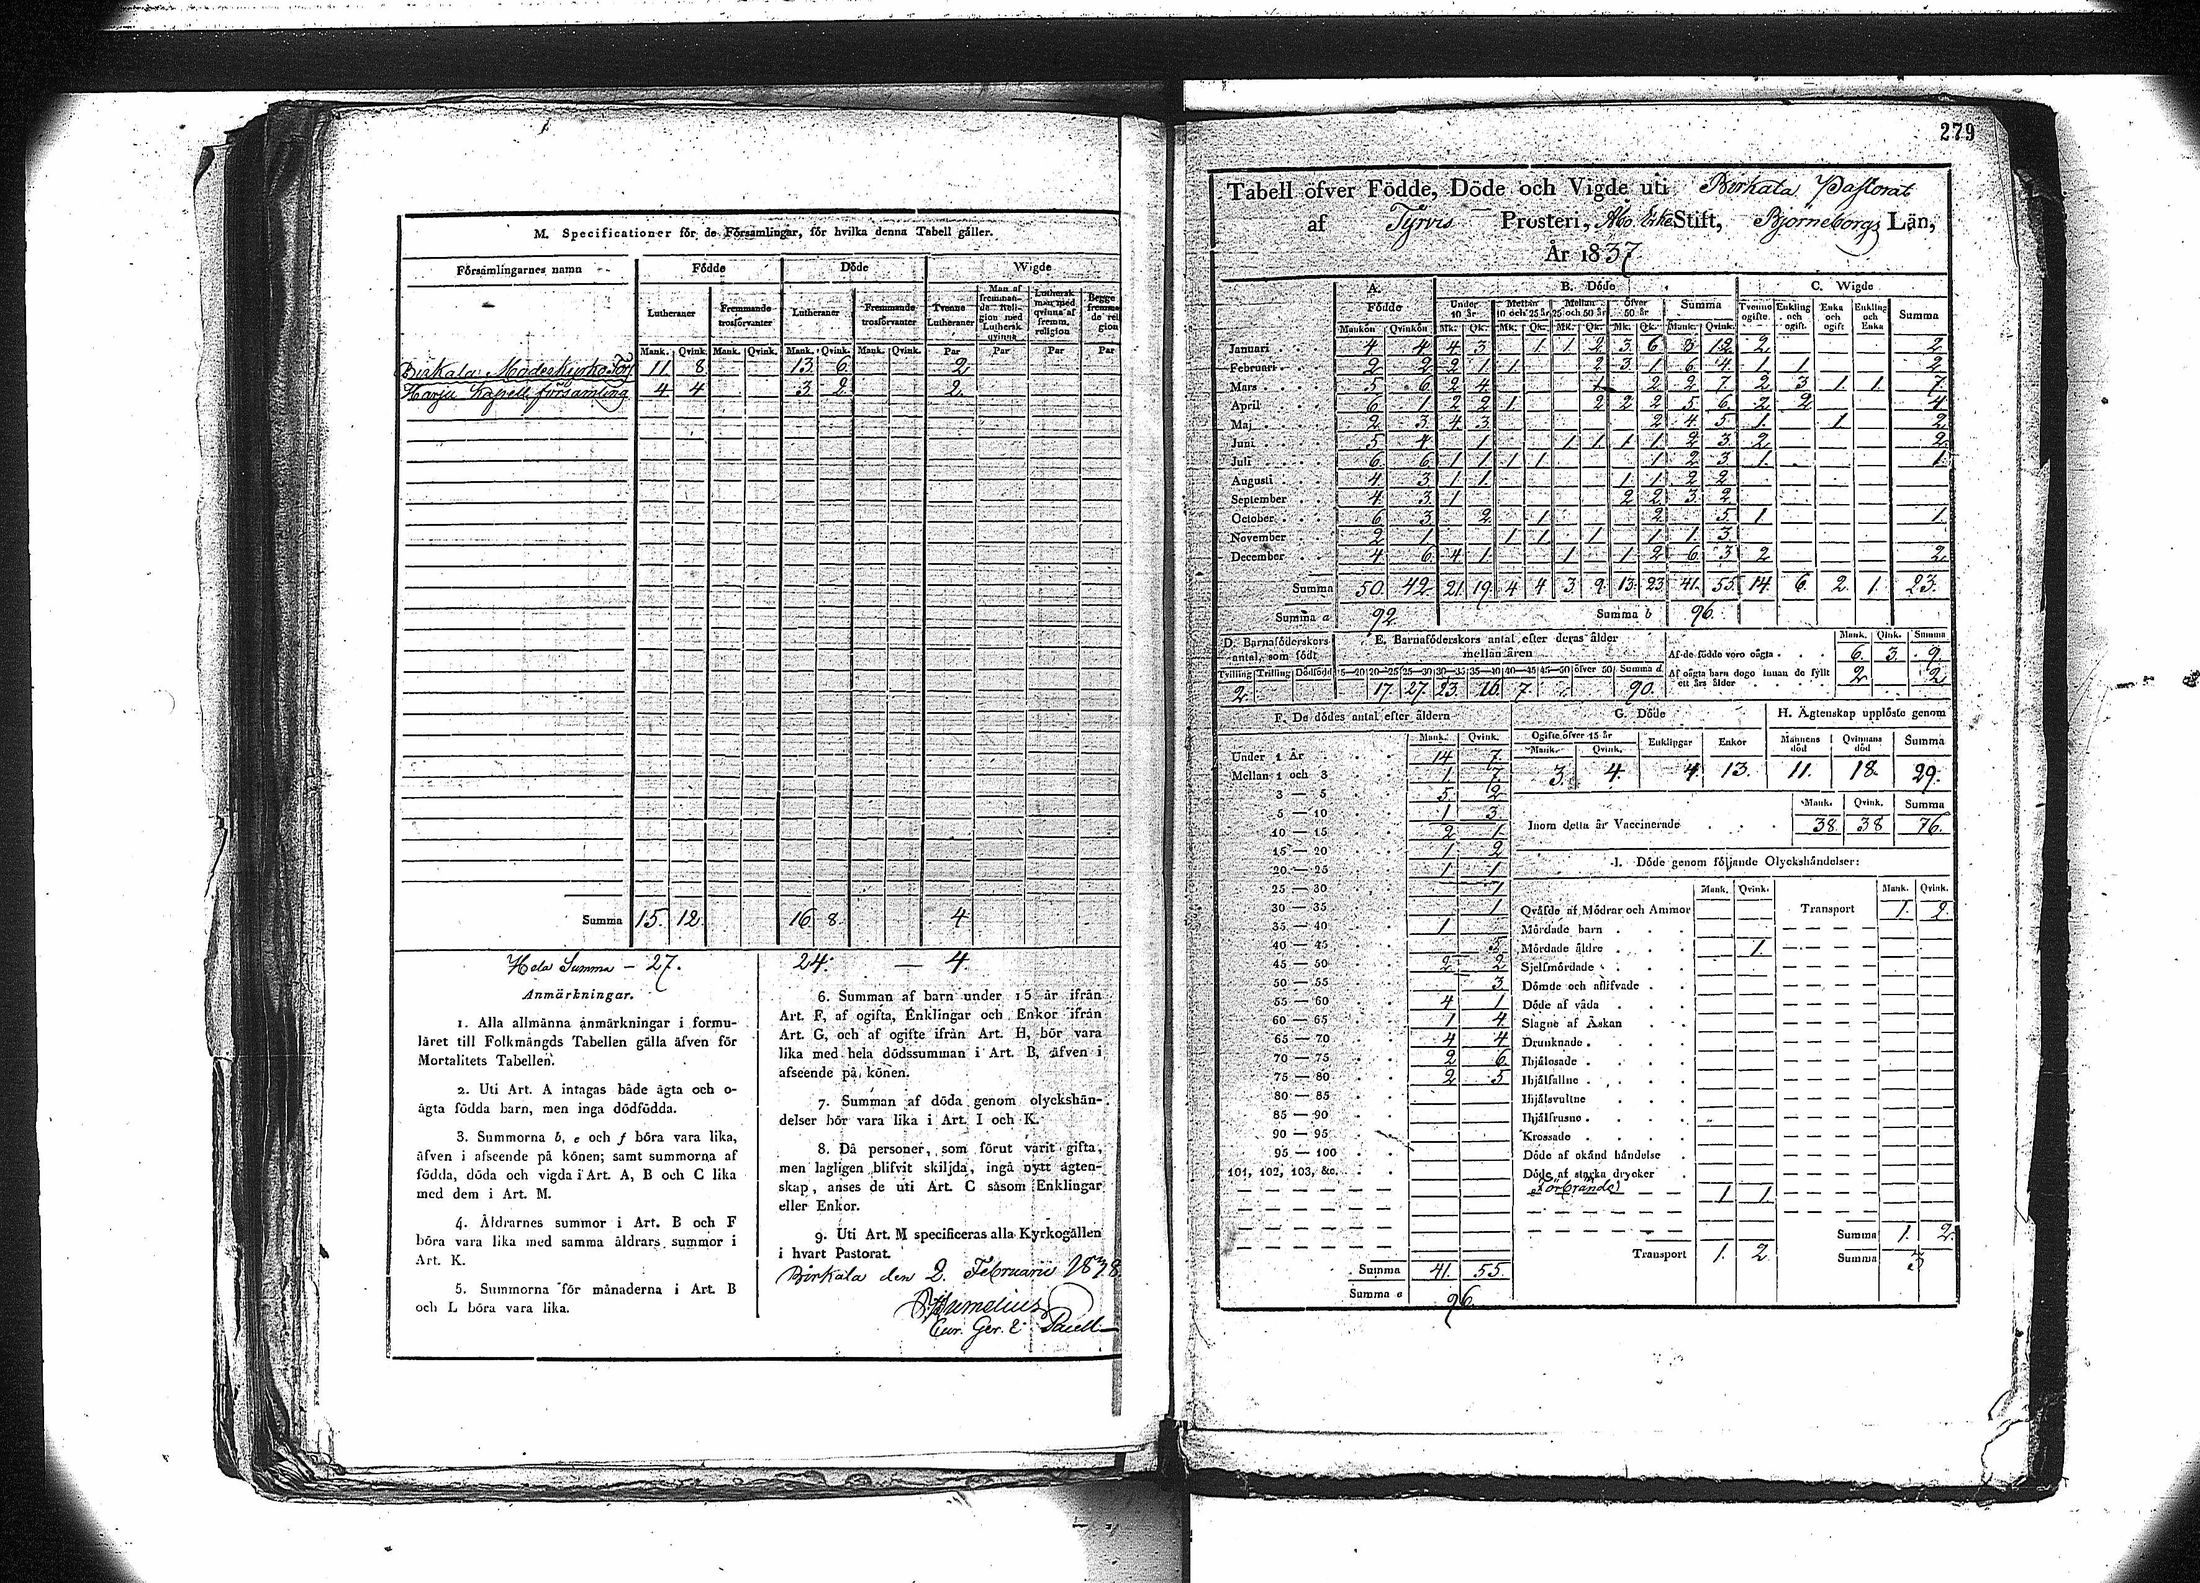 M. Specificationer för de Församlingar, för hvilka denna Tabell gäller.
Församlingarnes namn Födde Döde Wigde
Lutheraner Fremmande trosförvanter Lutheraner Fremmande trosförvanter Tvenne Lutheraner Man af fremmande Religion med Luthersk qvinna Luthersk man med qvinna af fremm. religion Begge fremmande religion
Mank. Qvink. Mank. Qvink. Mank. Qvink. Mank. Qvink. Par Par Par Par
Birkala Moderkyrko Förs 11 8 13 6 2
Harju Kapell församling 4 4 3 2 2.
Summa 15. 12. 16 8 4
Hela Summa – 27. 24. — 4
Anmärkningar.
1. Alla allmänna anmärkningar i formu-
läret till Folkmängds Tabellen gälla äfven för
Mortalitets Tabellen.
2. Uti Art. A intagas både ägta och o-
ägta födda barn, men inga dödfödda.
3. Summorna b, e och f böra vara lika,
äfven i afseende på könen; samt summorna af
födda, döda och vigda i Art. A, B och C lika
med dem i Art. M.
4. Åldrarnes summor i Art. B och F
böra vara lika med samma åldrars summor i
Art. K.
5. Summorna för månaderna i Art. B
och L böra vara lika.
6. Summan af barn under 15 år ifrån
Art. F, af ogifta, Enklingar och Enkor ifrån
Art. G, och af ogifte ifrån Art. H, bör vara
lika med hela dödssumman i Art. B, äfven i
afseende på könen.
7. Summan af döda genom olyckshän-
delser bör vara lika i Art. I och K.
8. Då personer, som förut varit gifta,
men lagligen blifvit skiljda, ingå nytt ägten-
skap, anses de uti Art. C såsom Enklingar
eller Enkor.
9. Uti Art. M specificeras alla Kyrkogällen
i hvart Pastorat.
Birkala den 2. Februarii 1838
279
Tabell öfver Födde, Döde och Vigde uti Birkala Pastorat
af Tyrvis Prosteri, Åbo Erke Stift, Björneborgs Län,
År 1837.
A. Födde B. Döde C. Wigde
Under 10 år Mellan 10 och 25 år Mellan 25 och 50 år Öfver 50 år Summa Tvenne ogifte Enkling och ogift Enka och ogift Enkling och Enka Summa
Mankön Qvinkön Mk. Qk. Mk. Qk. Mk. Qk. Mk. Qk. Mank. Qvink.
Januari 4 4 4 3 1 1 2 3 6 3 12 2 2
Februari 2 2 2 1 1 2 3 1 6 4 1 1 2
Mars 5 6 2 4 1 2 2 7 2 3 1 1 7
April 6 1 2 2 1 2 2 2 5 6 2 2 4
Maj 2 3 4 3 2 4 5 1 1 2
Juni 5 4 1 1 1 1 1 2 3 2 2
Juli 6 6 1 1 1 1 1 2 3 1 1
Augusti 4 3 1 1 1 1 2 2
September 4 3 1 2 2 3 2
October 6 3 2 1 2 5 1 1
November 2 1 1 1 1 1 1 3
December 4 6 4 1 1 1 2 6 3 2 2
Summa 50. 42. 21 19. 4 4 3 9. 13. 23. 41. 55. 14. 6. 2. 1. 23.
Summa a 92 Summa b 96.
D. Barnaföderskors antal, som födt
Tvilling Trilling Dödfödd
2.
E. Barnaföderskors antal efter deras ålder mellan åren
15—20 20—25 25—30 30—35 35—40 40—45 45—50 öfver 50 Summa d
17. 27. 23. 16. 7. 90.
Mank. Qink. Summa
Af de födde voro oägta 6 3. 9.
Af oägta barn dogo innan de fyllt ett års ålder 2 2
F. De dödes antal efter åldern
Mank. Qvink.
Under 1 År 14 7.
Mellan 1 och 3 1. 7.
3 — 5 5. 2
5 — 10 1 3.
10 — 15 2 1
15 — 20 1 2
20 — 25 1 1
25 — 30 1
30 — 35 1.
35 — 40 1
40 — 45 5.
45 — 50 2 2
50 — 55 3.
55 — 60 4 1
60 — 65 1 4.
65 — 70 4 4
70 — 75 2 6.
75 — 80 2 5
80 — 85
85 — 90
90 — 95
95 — 100
101, 102, 103, &c.
Summa 41. 55.
Summa e 96.
G. Döde
Ogifte öfver 15 år Enklingar Enkor
Mank. Qvink.
3. 4. 4. 13.
H. Ägtenskap upplöste genom
Mannens död Qvinnans död Summa
11. 18. 29.
Mank. Qvink. Summa
Inom detta år Vaccinerade 38 38 76.
I. Döde genom följande Olyckshändelser:
Mank. Qvink. Mank. Qvink.
Qväfde af Mödrar och Ammor Transport 1. 2.
Mördade barn
Mördade äldre 1.
Sjelfmördade
Dömde och aflifvade
Döde af våda
Slagne af Åskan
Drunknade
Ihjälosade
Ihjälfallne
Ihjälsvultne
Ihjälfrusne
Krossade
Döde af okänd händelse
Döde af starka drycker
Förbrände 1 1.
Summa 1. 2.
Transport 1. 2. Summa 3